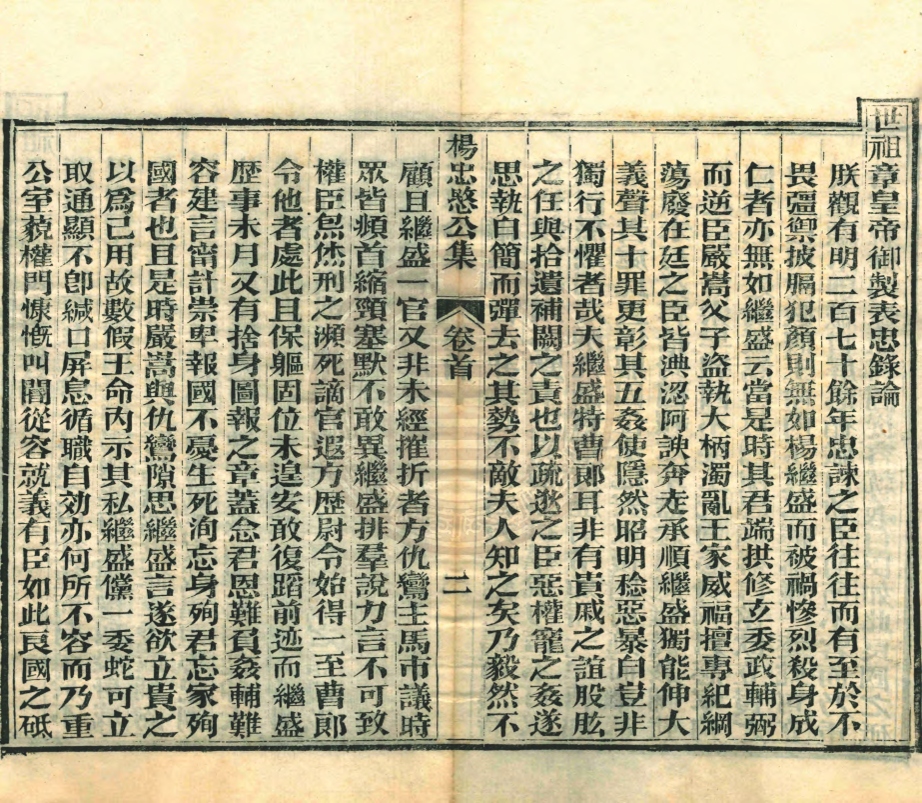 世祖章皇帝御製表忠錄論
朕觀有明二百七十餘年忠諫之臣往往而有至於不
畏彊禦披膈犯顏則無如楊繼盛而被禍慘烈殺身成
仁者亦無如繼盛云當是時其君端拱修玄委政輔弼
而逆臣嚴嵩父子盜執大柄濁亂王家威福擅專紀綱
蕩廢在廷之臣皆淟涊阿諛奔走承順繼盛獨能伸大
義聲其十罪更彰其五姦使隱然昭明稔惡暴白豈非
獨行不懼者哉夫繼盛特曹郎耳非有貴戚之誼股肱
之任與拾遺補闕之責也以疏逖之臣惡權寵之姦遂
思執白簡而彈去之其勢不敵夫人知之矣乃毅然不
楊忠愍公集
卷首
二
顧且繼盛一官又非未經摧折者方仇鸞主馬市議時
眾皆頫首縮頸塞默不敢異繼盛排羣說力言不可致
權臣烋烋刑之瀕死謫官遐方歷尉令始得一至曹郎
令他者處此且保軀固位未遑安敢復蹈前迹而繼盛
歷事未月又有捨身圖報之章蓋念君恩難負姦輔難
容建言甯計崇卑報國不憂生死洵忘身殉君忘家殉
國者也且是時嚴嵩與仇鸞隙思繼盛言遂欲立貴之
以為己用故數假王命內示其私繼盛儻一委蛇可立
取通顯不卽緘口屏息循職自効亦何所不容而乃重
公室藐權門慷慨叫閽從容就義有臣如此良國之砥